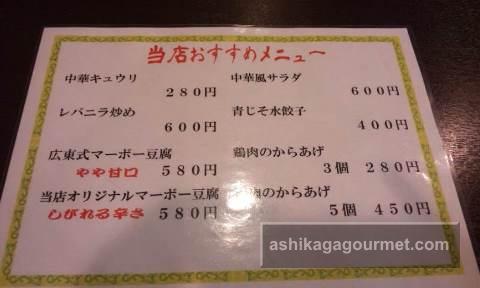 当店おすすめメニュー
中華キュウリ
280円
レバニラ炒め
600円
広東式マーボー豆腐
やや甘口 580円
当店オリジナルマーボー豆腐
しびれる辛さ 580円
中華風サラダ
600円
青じそ水餃子
400円
鶏肉のからあげ
3個 280円
肉のからあげ
5個 450円
ashikagagourmet.com